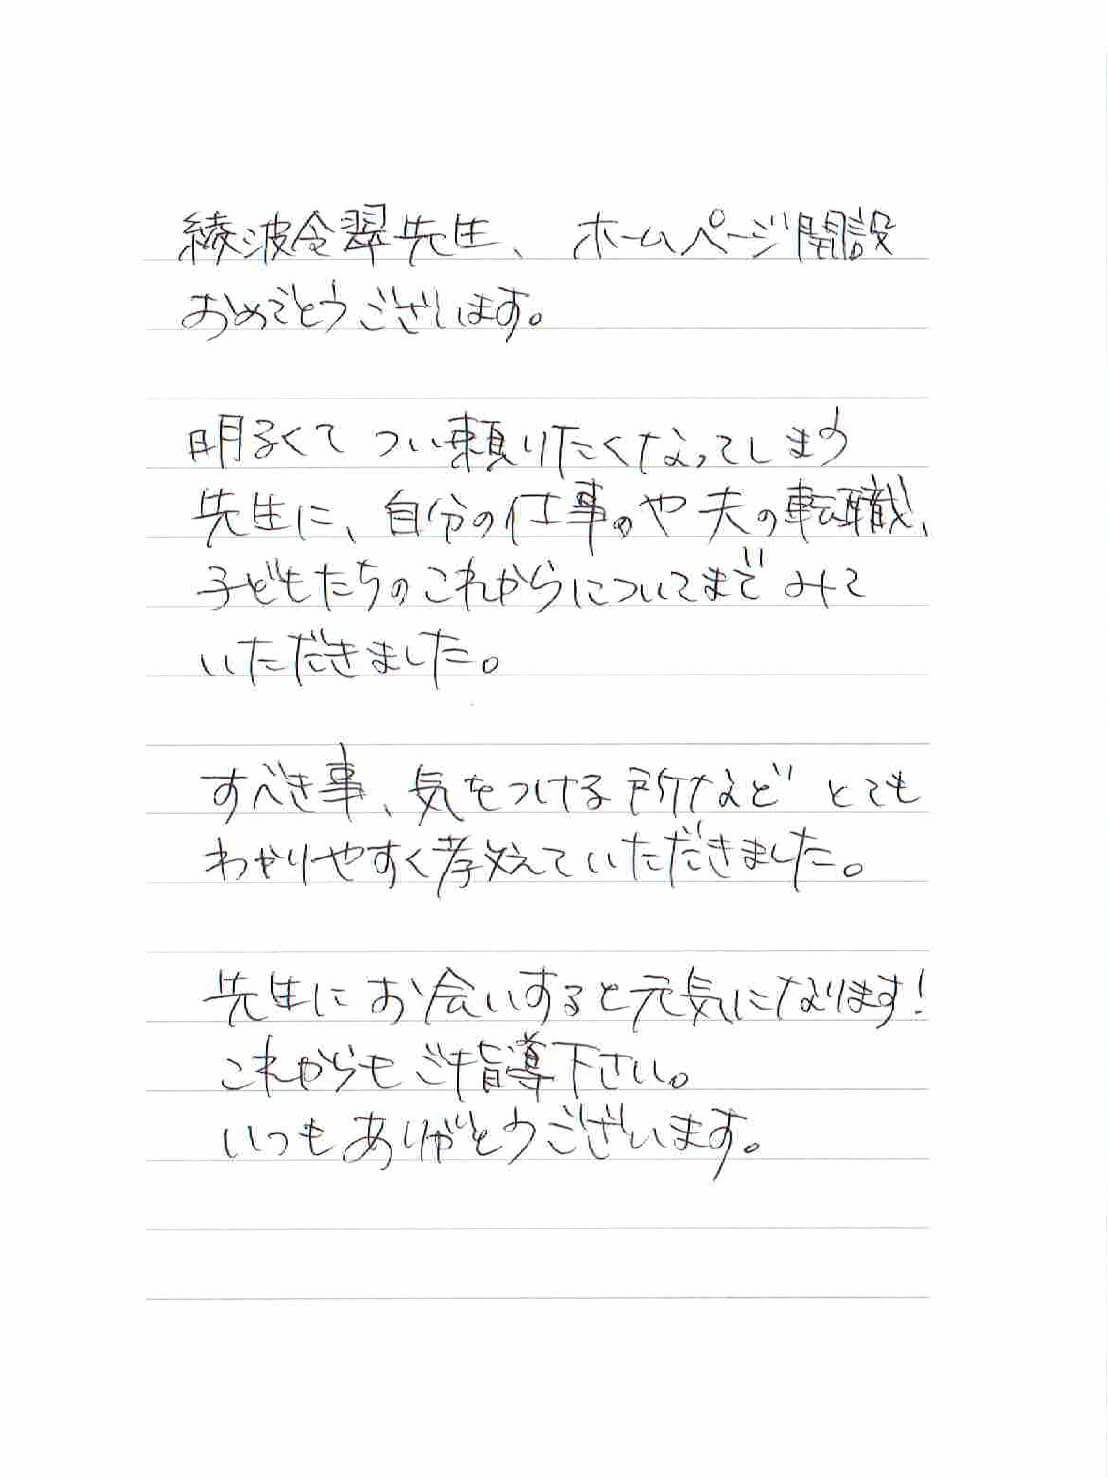 綾波令翠先生、ホームページ開設
おめでとうございます。
明るくてつい頼りたくなってしまう
先生に、自分の仕事のや夫の転職、
子どもたちのこれからについてまでみて
いただきました。
すべき事、気をつける所などとても
わかりやすく教えていただきました。
先生にお会いすると元気になります!
これからもご指導下さい。
いつもありがとうございます。